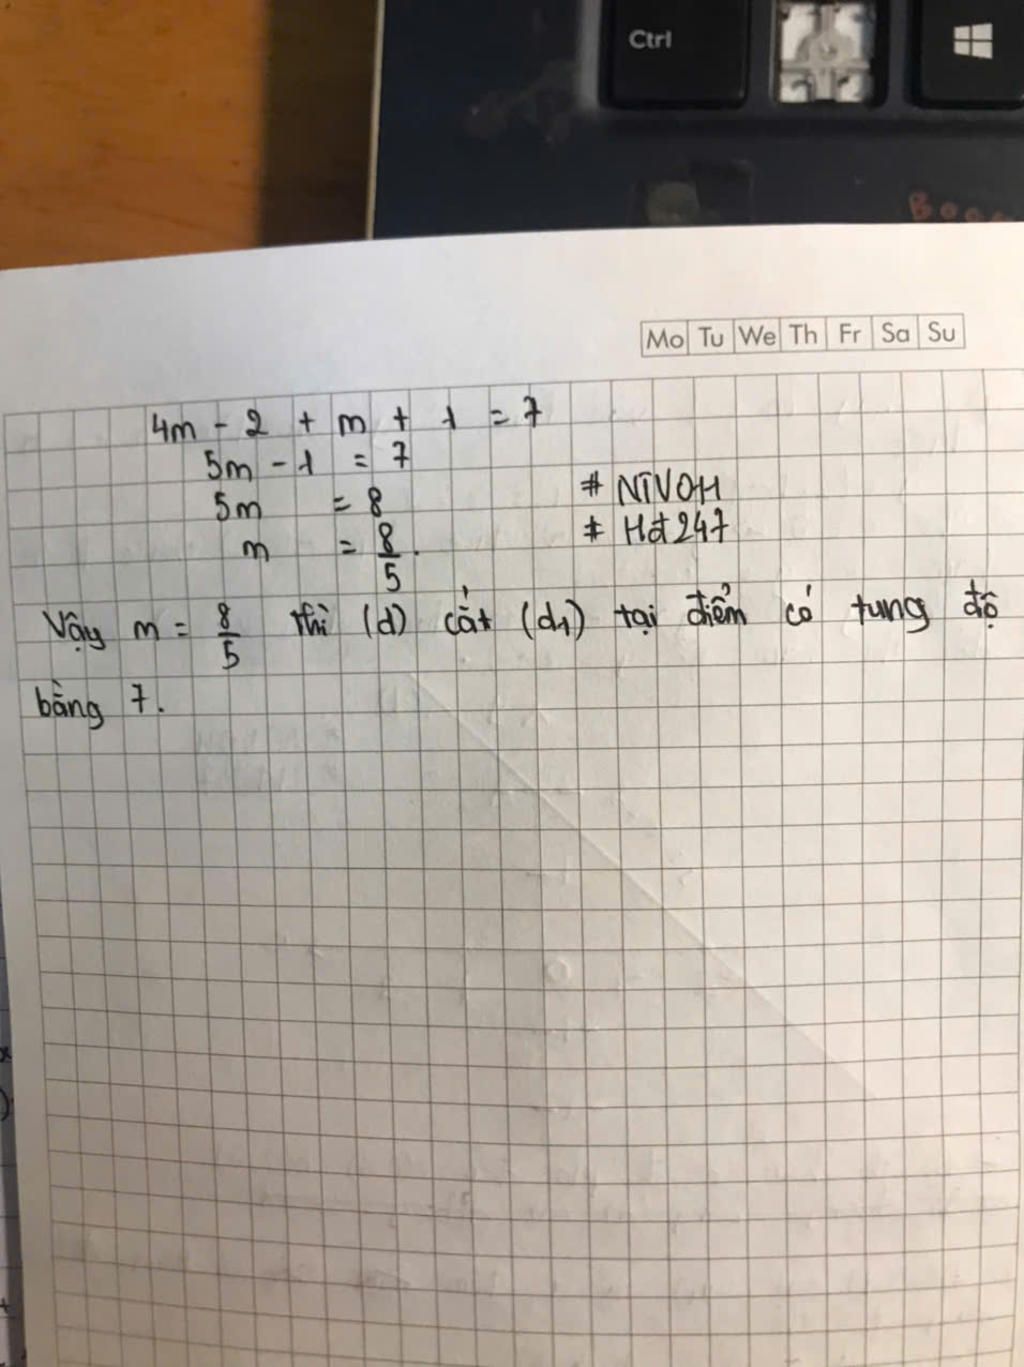 Ctrl
Mo Tu We Th Fr Sa Su
4m - 2 + m + 1 = 7
5m - 1 = 7
5m = 8
# NIVOH
m = 8/5.
# Hđ247
Vậy m = 8/5 thì (d) cắt (d1) tại điểm có tung độ
bằng 7.